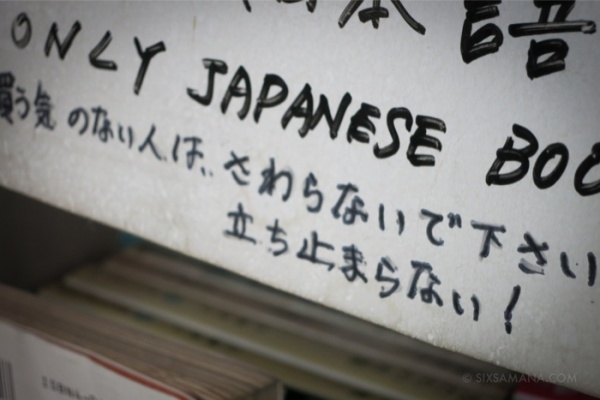 本語
ONLY JAPANESE BOO
買う気のない人は、さわらないで下さい
立ち止まらない!
© SIXSAMANA.COM